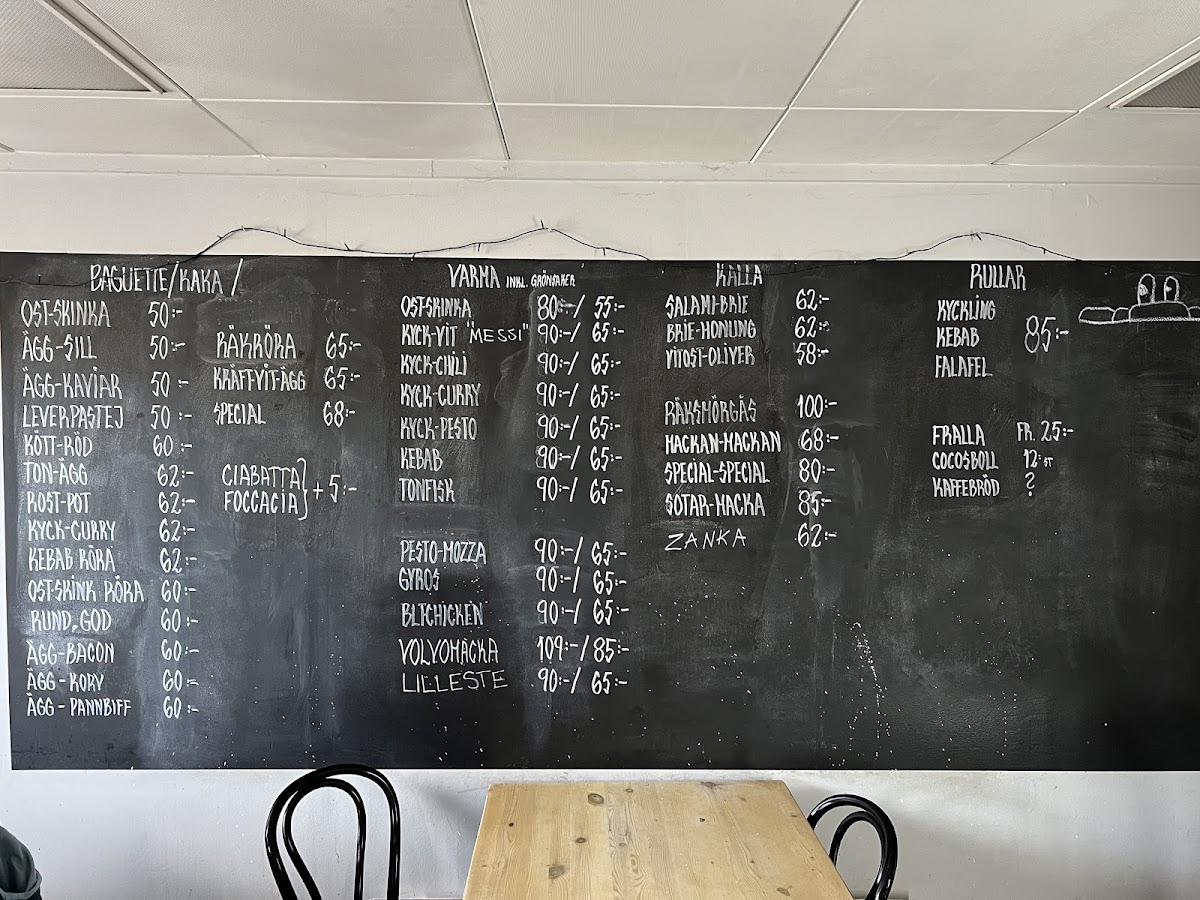 BAGUETTE/KAKA/
OST-SKINKA 50:-
ÄGG-SILL 50:-
ÄGG-KAVIAR 50:-
LEVERPASTEJ 50:-
KÖTT-RÖD 60:-
TON-ÄGG 62:-
ROST-POT 62:-
KYCK-CURRY 62:-
KEBAB RÖRA 62:-
OST-SKINK RÖRA 60:-
RUND.GOD 60:-
ÄGG-BACON 60:-
ÄGG-KORV 60:-
ÄGG-PANNBIFF 60:-
RÄKRÖRA 65:-
KRÄFTVIT-ÄGG 65:-
SPECIAL 68:-
CIABATTA
FOCCACIA } + 5:-
VARMA INKL. GRÖNSAKER
OST-SKINKA 80:-/ 55:-
KYCK-VIT "MESSI" 90:-/ 65:-
KYCK-CHILI 90:-/ 65:-
KYCK-CURRY 90:-/ 65:-
KYCK-PESTO 90:-/ 65:-
KEBAB 90:-/ 65:-
TONFISK 90:-/ 65:-
PESTO-MOZZA 90:-/ 65:-
GYROS 90:-/ 65:-
BLTCHICKEN 90:-/ 65:-
VOLVOMACKA 109:-/ 85:-
LILLESTE 90:-/ 65:-
KALLA
SALAMI-BRIE 62:-
BRIE-HONUNG 62:-
VITOST-OLIVER 58:-
RÄKSMÖRGÅS 100:-
MACKAN-MACKAN 68:-
SPECIAL-SPECIAL 80:-
SOTAR-MACKA 85:-
ZANKA 62:-
RULLAR
KYCKLING
KEBAB 85:-
FALAFEL
FRALLA FR. 25:-
COCOSBOLL 12:-ST
KAFFEBRÖD ?